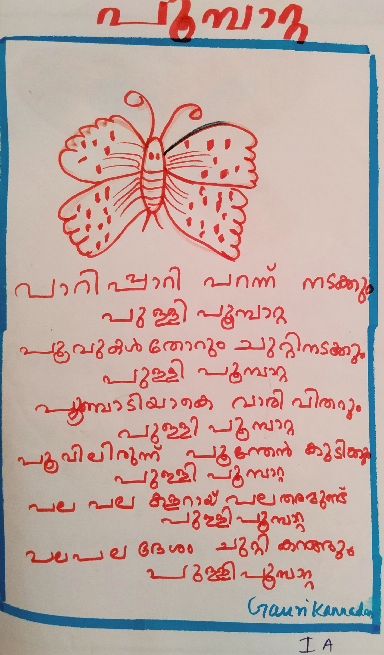 പൂമ്പാറ്റ
പാറിപ്പാറി പറന്ന് നടക്കും
പുള്ളി പൂമ്പാറ്റ
പൂവുകൾതോറും ചുറ്റിനടക്കും
പുള്ളി പൂമ്പാറ്റ
പൂമ്പൊടിയാകെ വാരി വിതറും
പുള്ളി പൂമ്പാറ്റ
പൂവിലിരുന്ന് പൂന്തേൻ കുടിക്കും
പുള്ളി പൂമ്പാറ്റ
പല പല കളറായ് പലതരമുണ്ട്
പുള്ളി പൂമ്പാറ്റ
പലപല ദേശം ചുറ്റി കറങ്ങും
പുള്ളി പൂമ്പാറ്റ
Gauri Kannadas
I A